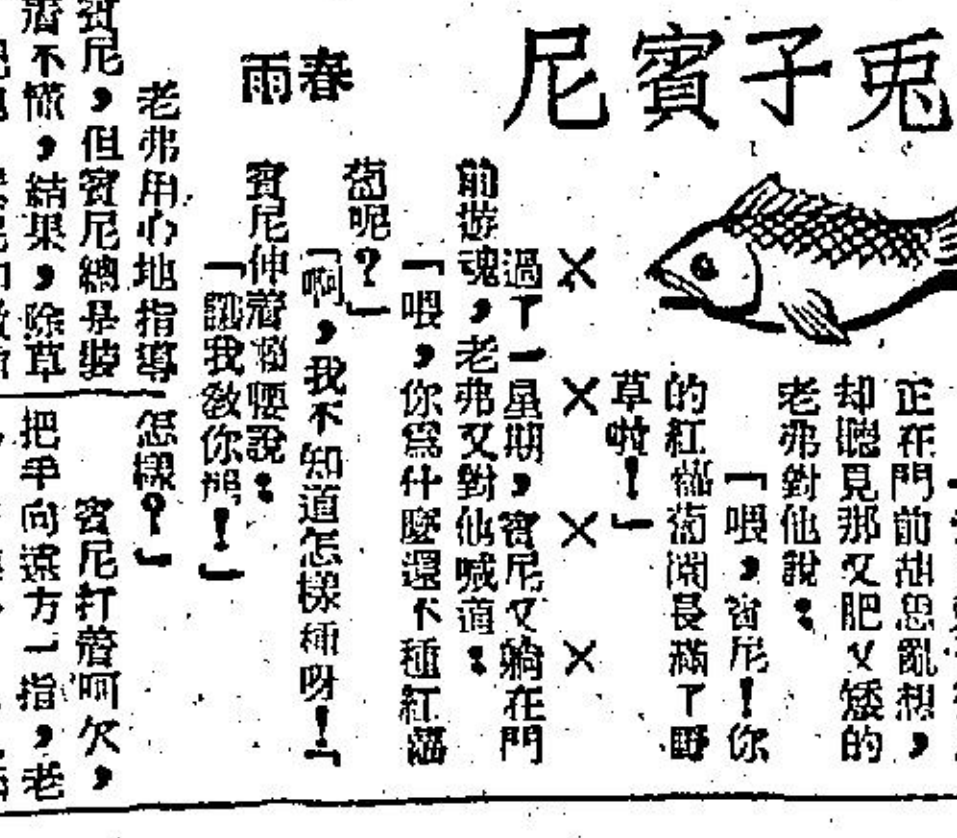 兎子賓尼
春雨
正在門前胡思亂想，
却聽見那又肥又矮的
老弗對他說：
「喂，賓尼！你
的紅蘿蔔園長滿了野
草啦！」
××××
過了一星期，賓尼又躺在門
前遊魂，老弗又對他喊道：
「喂，你爲什麽還不種紅蘿
蔔呢？」
「啊，我不知道怎樣種呀！」
賓尼伸着懶腰說：
「讓我敎你吧！」
老弗用心地指導
賓尼，但賓尼總是裝
着不懂，結果，除草
怎樣？」
賓尼打着呵欠，
把手向遠方一指，老